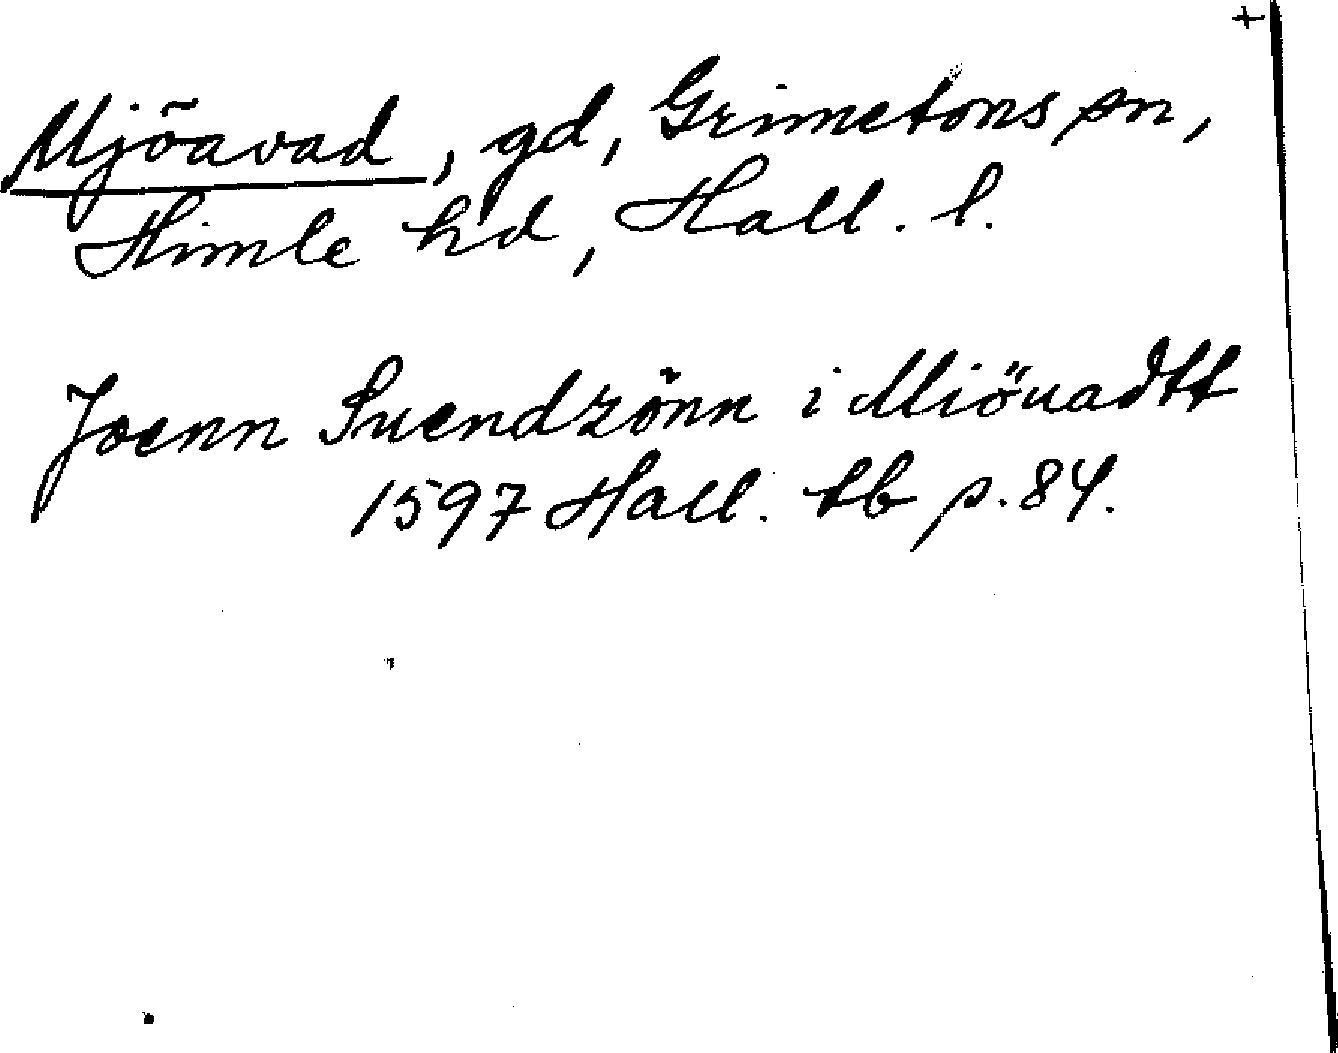 +
Mjöavad, gd, Grimetons sn,
Himle hd, Hall. l.
Joenn Suendzönn i Miöuadtt
1597 Hall. tb p. 84.